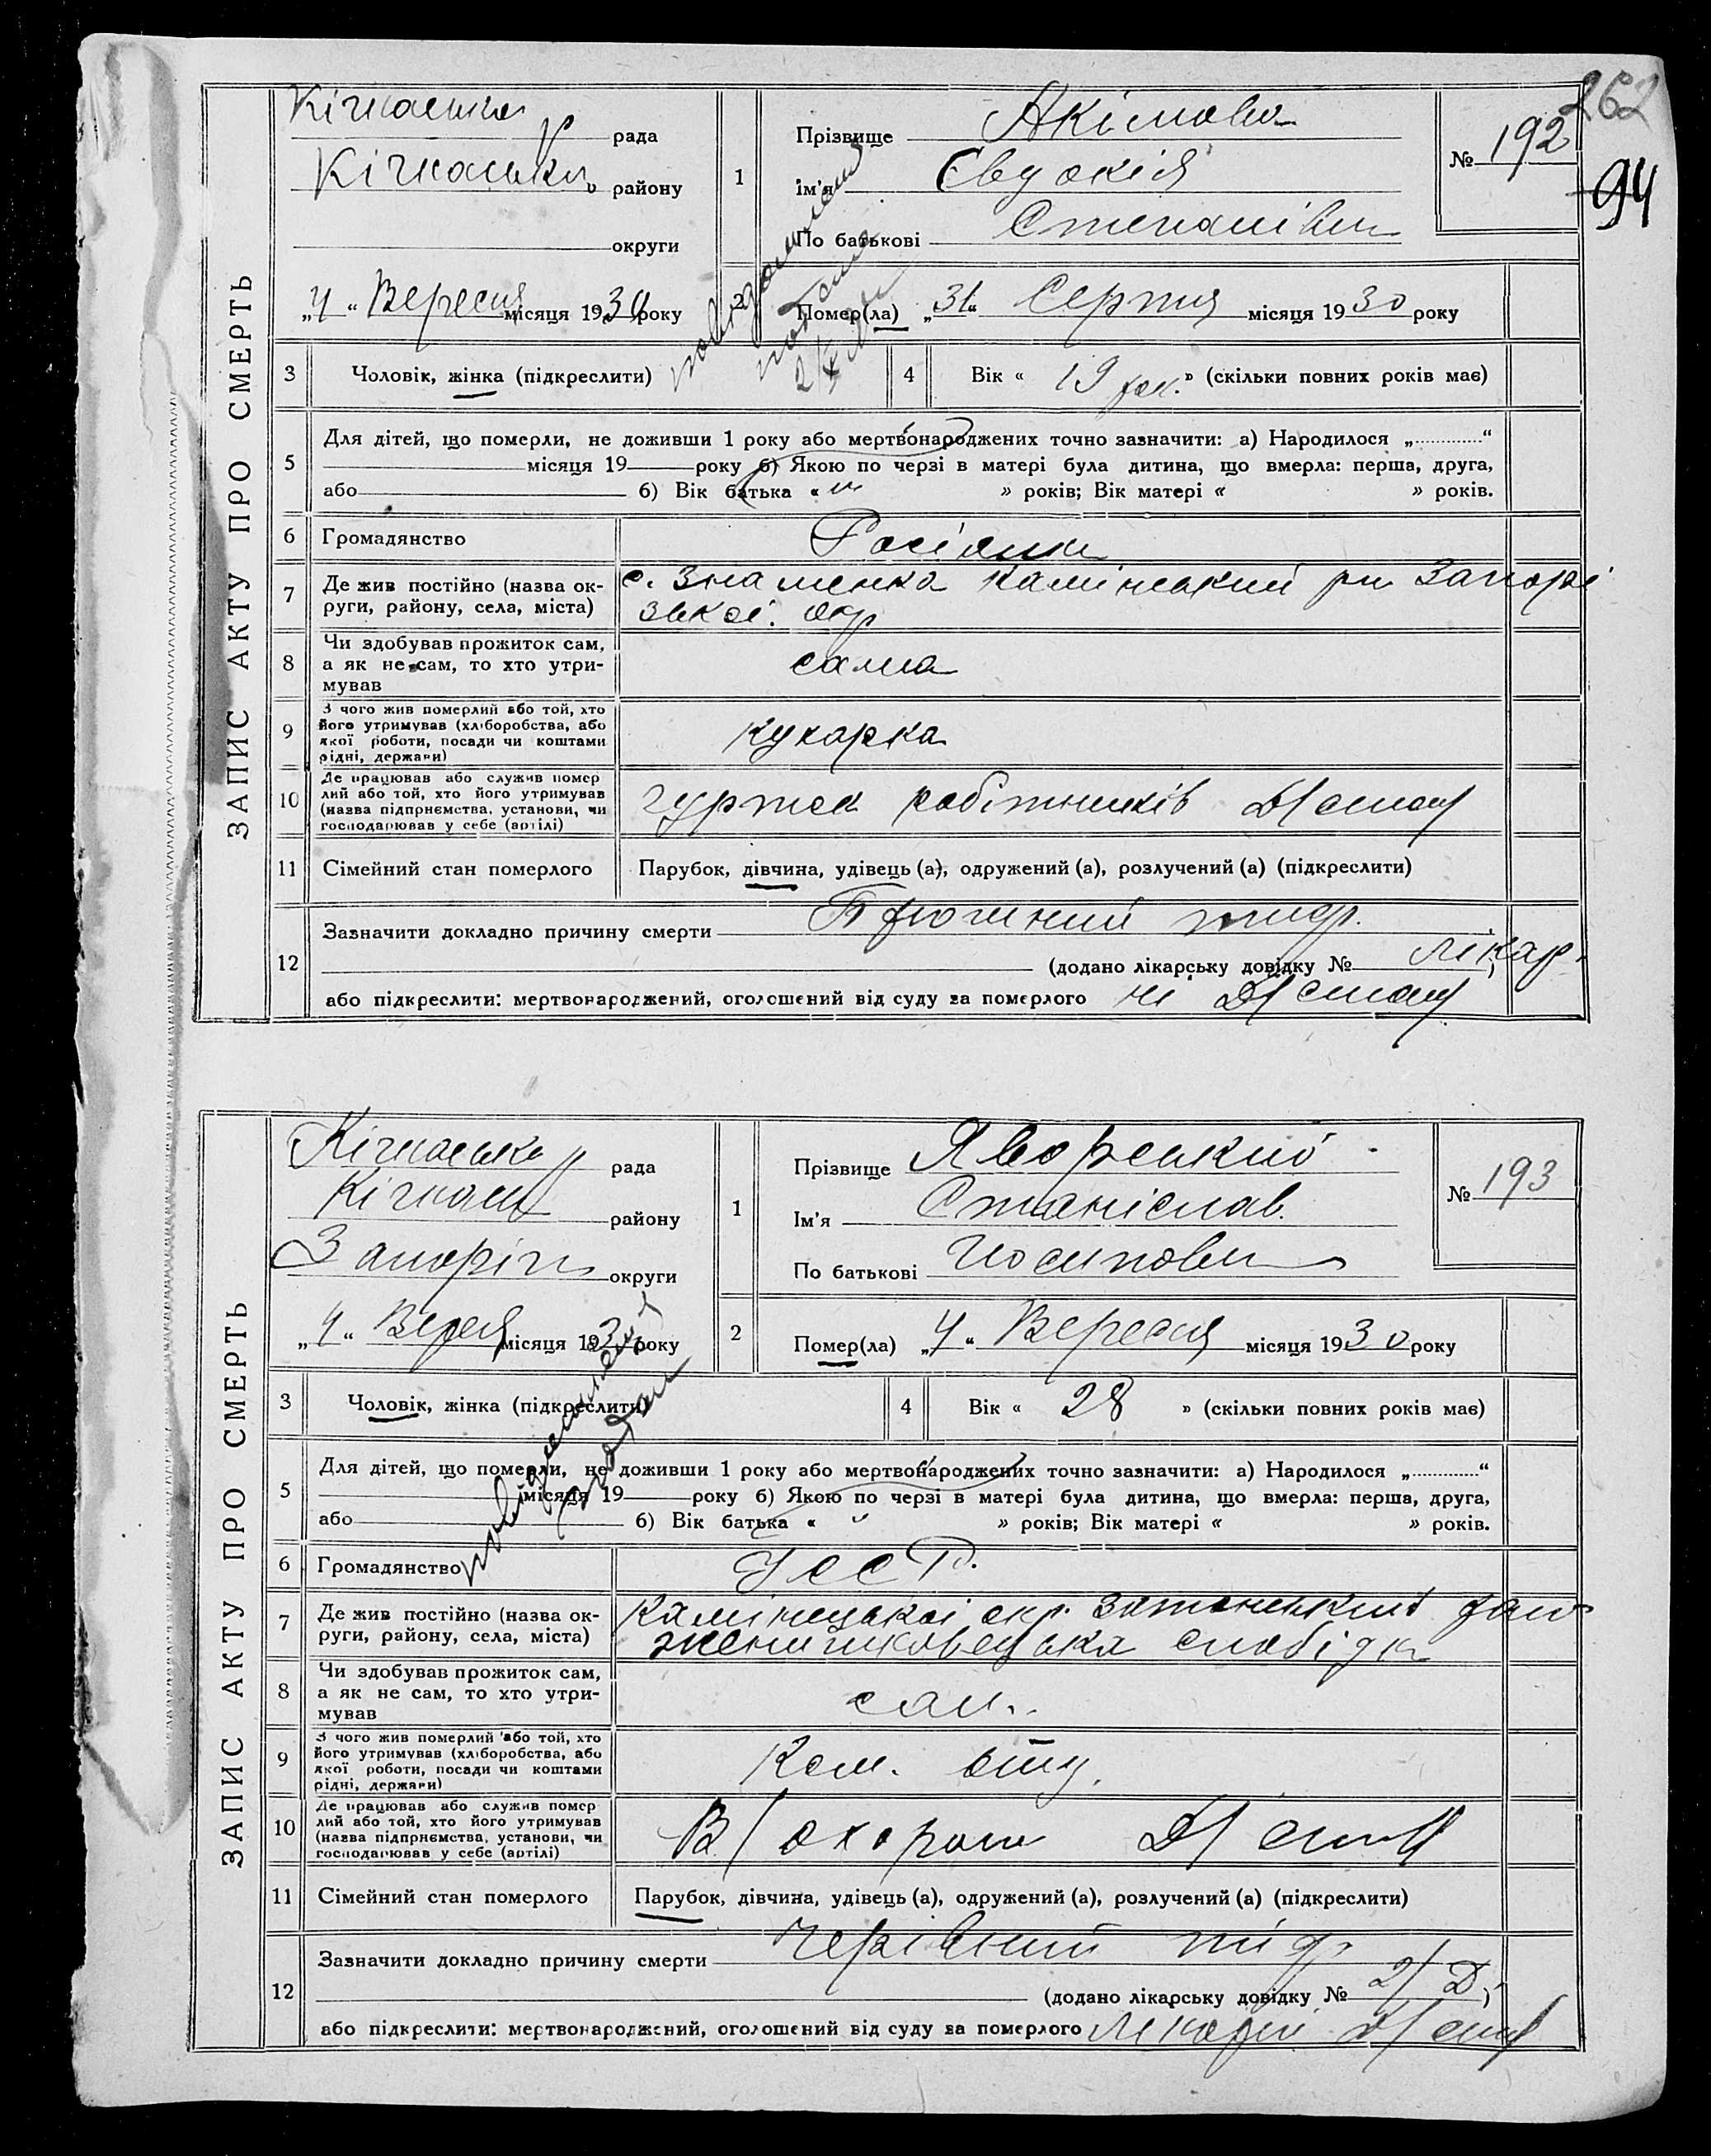 262
94
ЗАПИС АКТУ ПРО СМЕРТЬ
Кічкаська рада
Кічкаськ району
округи
„4“ Вересня місяця 1930 року
1
Прізвище Якімова
Ім'я Євдокія
По батькові Степанівн
№ 192
2
Помер(ла) „31“ Серпня місяця 1930 року
3 Чоловік, жінка (підкреслити)
4 Вік « 19 рок. » (скільки повних років має)
5 Для дітей, що померли, не доживши 1 року або мертвонароджених точно зазначити: а) Народилося „ “
місяця 19 року б) Якою по черзі в матері була дитина, що вмерла: перша, друга,
або б) Вік батька « » років; Вік матері « » років.
6 Громадянство Росіянка
7 Де жив постійно (назва округи, району, села, міста) с. Знаменка Камінський рн Запорі
зької. окр
8 Чи здобував прожиток сам,
а як не сам, то хто утри-
мував сама
9 З чого жив померлий або той, хто
його утримував (хліборобства, або
якої роботи, посади чи коштами
рідні, держави) кухарка
10 Де працював або служив помер
лий або той, хто його утримував
(назва підприємства, установи, чи
господарював у себе (артілі) гурток робітників Д/
11 Сімейний стан померлого Парубок, дівчина, удівець (а), одружений (а), розлучений (а) (підкреслити)
12 Зазначити докладно причину смерти тиф.
(додано лікарську довідку № Лікар
або підкреслити: мертвонароджений, оголошений від суду за померлого ні Д/
ЗАПИС АКТУ ПРО СМЕРТЬ
Кічкаська рада
Кічкась району
Запоріз округи
„4“ Вересня місяця 1930 року
1
Прізвище Яворський
Ім'я Станіслав.
По батькові Йосипович
№ 193
2
Помер(ла) „4“ Вересня місяця 1930 року
3 Чоловік, жінка (підкреслити)
4 Вік « 28 » (скільки повних років має)
5 Для дітей, що померли, не доживши 1 року або мертвонароджених точно зазначити: а) Народилося „ “
місяця 19 року б) Якою по черзі в матері була дитина, що вмерла: перша, друга,
або б) Вік батька « » років; Вік матері « » років.
6 Громадянство УССР.
7 Де жив постійно (назва ок-
руги, району, села, міста) Камінецької окр.
слобідка
8 Чи здобував прожиток сам,
а як не сам, то хто утри-
мував сам.
9 З чого жив померлий або той, хто
його утримував (хліборобства, або
якої роботи, посади чи коштами
рідні, держави) Ком.
10 Де працював або служив помер
лий або той, хто його утримував
(назва підприємства, установи, чи
господарював у себе (артілі) В/охорон Д/
11 Сімейний стан померлого Парубок, дівчина, удівець (а), одружений (а), розлучений (а) (підкреслити)
12 Зазначити докладно причину смерти Черевний тиф
(додано лікарську довідку № 2/Д)
або підкреслити: мертвонароджений, оголошений від суду за померлого Лікарні Д/